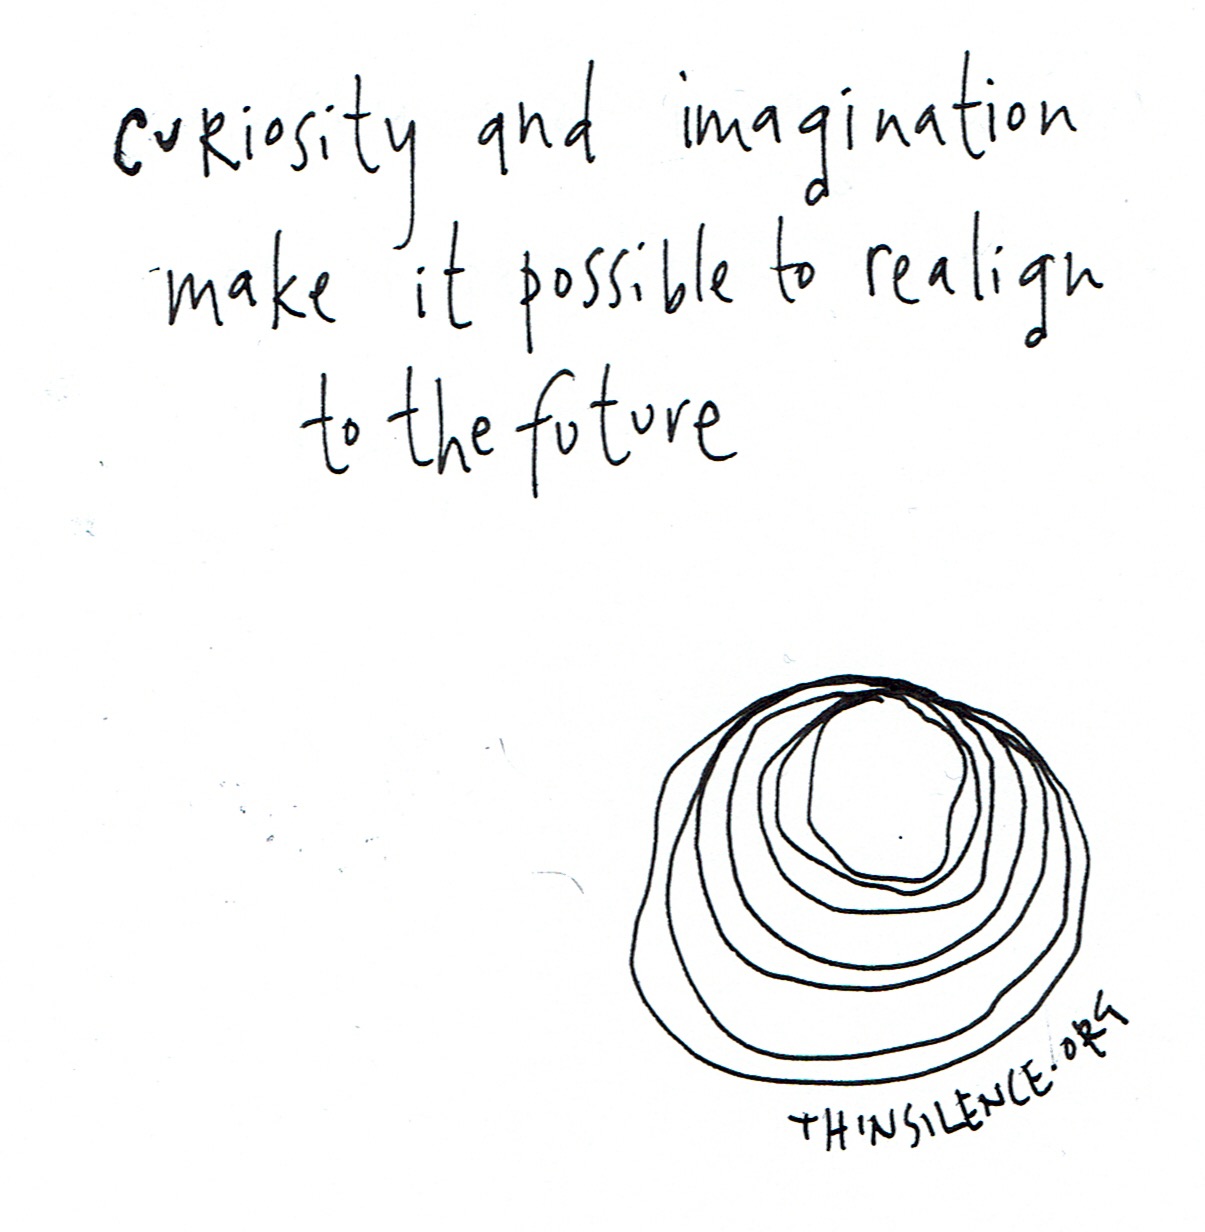 curiosity and imagination
make it possible to realign
to the future
THINSILENCE.ORG